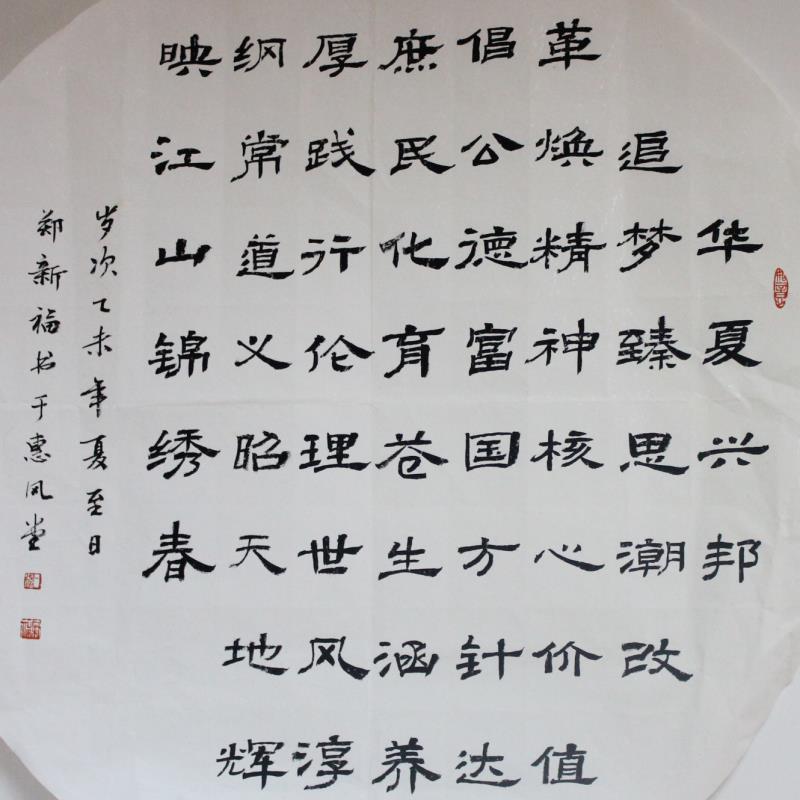 华夏兴邦
追梦臻思潮改
革焕精神核心价值
倡公德富国方针达
庶民化育苍生涵养
厚践行伦理世风淳
纲常道义昭天地辉
映江山锦绣春
岁次乙未年夏至日
郑新福书于惠风堂